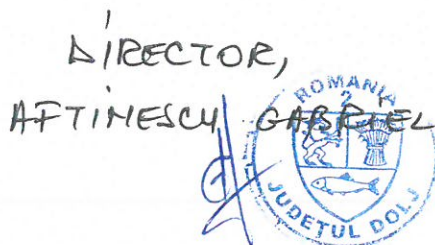 DIRECTOR,
AFTIMESCU GABRIEL
ROMANIA
2
JUDEȚUL DOLJ